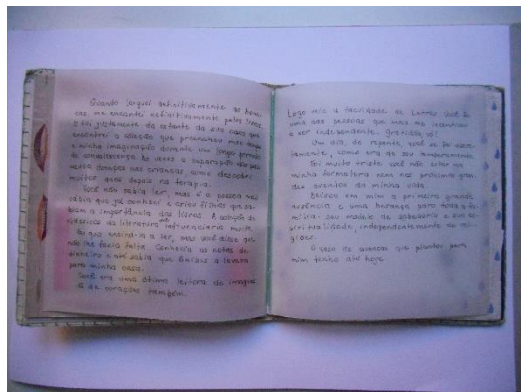 Quando larguei definitivamente as bone-
cas me encontrei definitivamente pelos livros.
E foi justamente da estante da sua casa que
encontrei a coleção que preencheu meu tempo
e minha imaginação durante um longo período
de convalescença. Às vezes a separação dos pais
causa doenças nas crianças, como descobri
muitos anos depois na terapia.
Você não sabia ler, mas é a pessoa mais
sábia que já conheci e criou filhos que sa-
biam a importância dos livros. A coleção de
clássicos da literatura influenciaria muito.
Eu quis ensiná-la a ler, mas você disse que
não lhe fazia falta. Conhecia as notas de
dinheiro e até sabia que ônibus a levava
para minha casa.
Você era uma ótima leitora de imagens
e de corações também.
Logo veio a faculdade de Letras. Você foi
uma das pessoas que mais me incentivou
a ser independente. Gratidão, vó!
Um dia, de repente, você se foi suave-
mente, como era de seu temperamento.
Foi muito triste você não estar na
minha formatura nem nos próximos gran-
des eventos da minha vida.
Deixou em mim a primeira grande
ausência e uma herança para toda a fa-
mília: seu modelo de sabedoria e sua es-
piritualidade, independentemente de reli-
gião.
O vaso de avencas que plantou para
mim tenho até hoje.